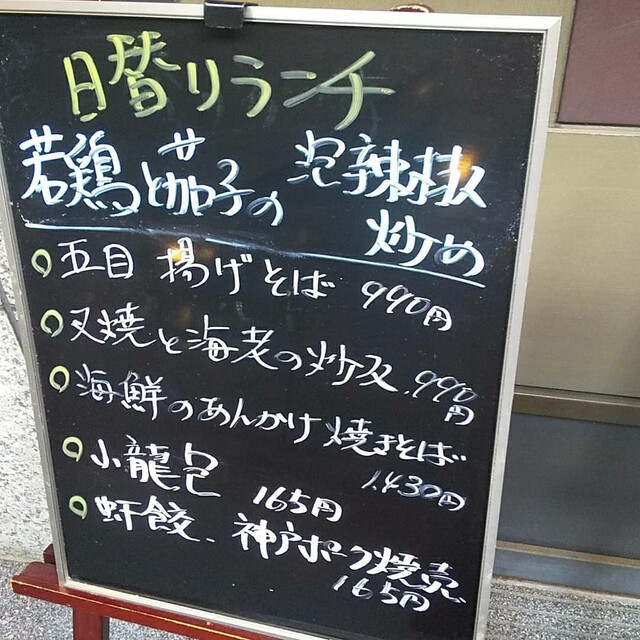 日替りランチ
若鶏と茄子の 泡辣椒
炒め
五目 揚げそば 990円
叉焼と海老の炒反 990円
海鮮のあんかけ焼きそば
1,430円
小龍包 165円
虾餃、神戸ポーク焼売
165円